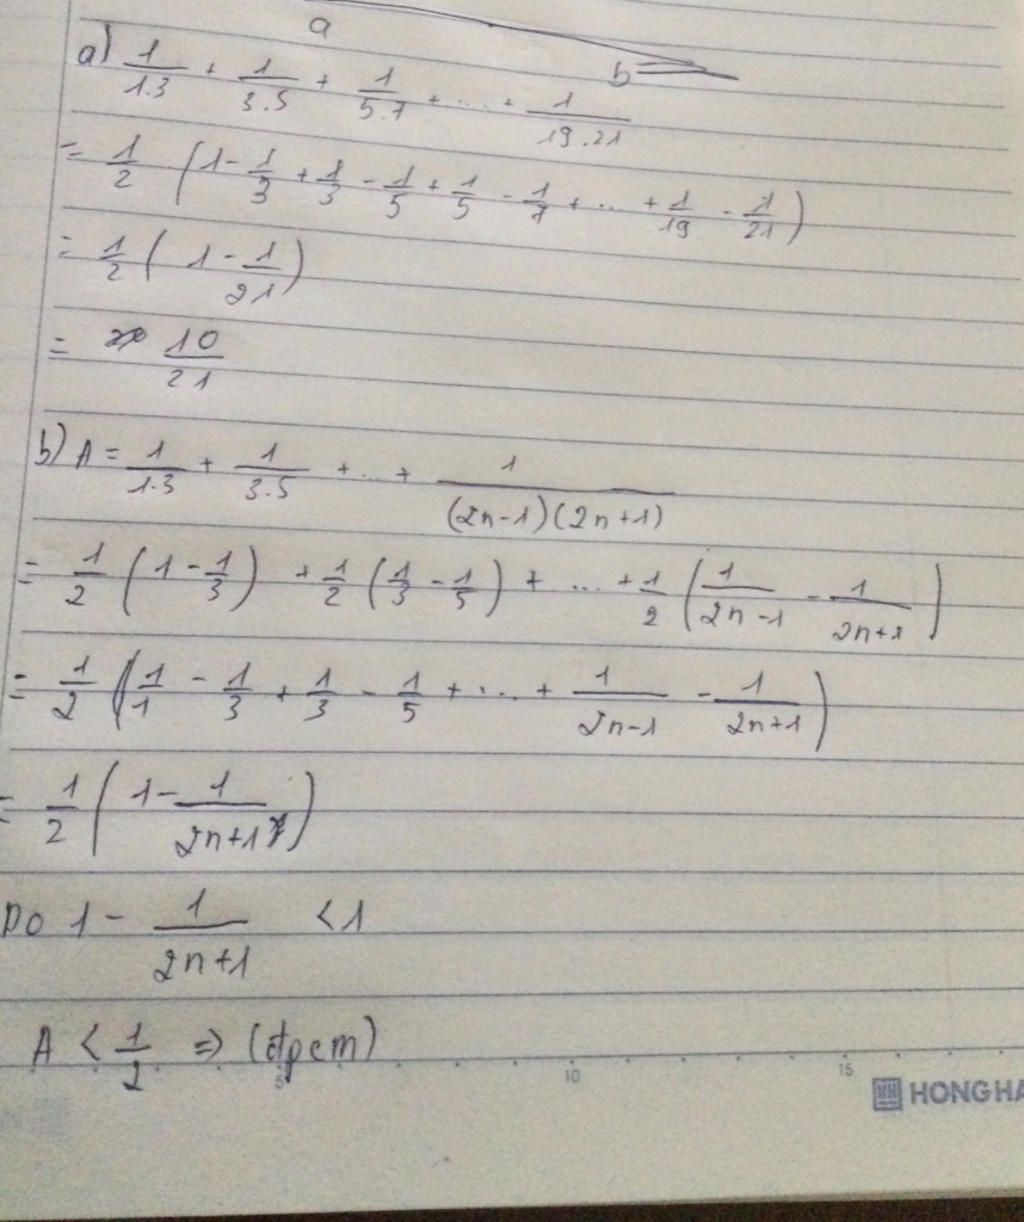 a
b
a) 1/1.3 + 1/3.5 + 1/5.7 + ... + 1/19.21
= 1/2 (1 - 1/3 + 1/3 - 1/5 + 1/5 - 1/7 + ... + 1/19 - 1/21)
= 1/2 (1 - 1/21)
= 10/21
b) A = 1/1.3 + 1/3.5 + ... + 1/(2n-1)(2n+1)
= 1/2 (1 - 1/3) + 1/2 (1/3 - 1/5) + ... + 1/2 (1/2n-1 - 1/2n+1)
= 1/2 (1/1 - 1/3 + 1/3 - 1/5 + ... + 1/2n-1 - 1/2n+1)
= 1/2 (1 - 1/2n+1)
Do 1 - 1/2n+1 < 1
A < 1/2 => (đpcm)
5 10 15
HONG HA